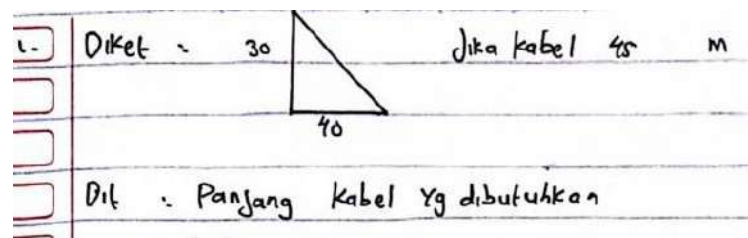 1. Diket : 30 Jika kabel 45 m
40
Dit : Panjang kabel yg dibutuhkan